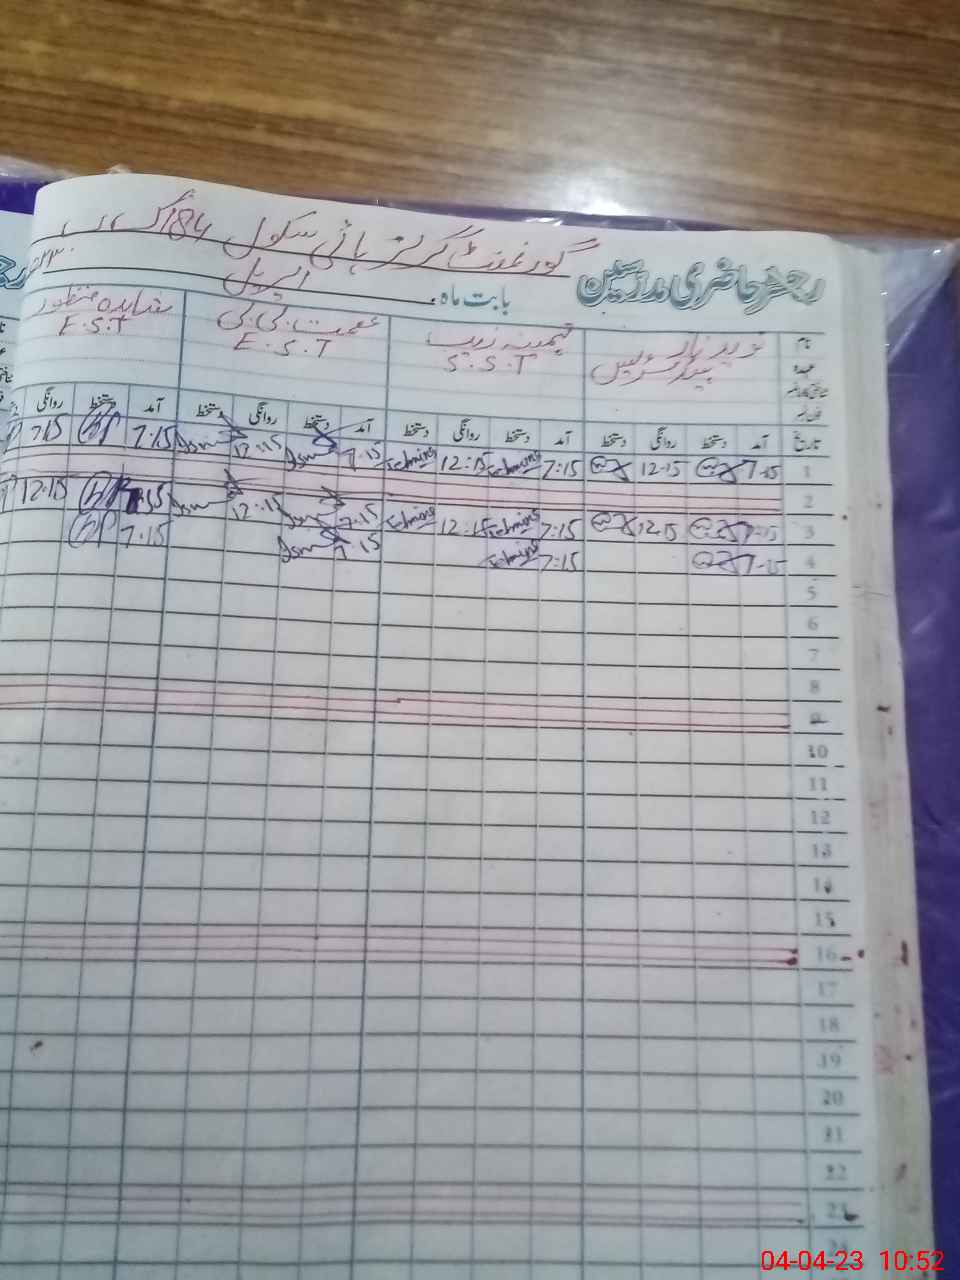 گورنمنٹ گرلز ہائی سکول 184 گ ب
رجسٹر حاضری مدرسین
بابت ماہ اپریل
نام
عہدہ
ہیڈ مسٹریس
تہمینہ زیب
S.S.T
عصمت بی بی
E.S.T
شاہدہ منظور
E.S.T
تاریخ آمد دستخط روانگی دستخط آمد دستخط روانگی دستخط آمد دستخط روانگی دستخط آمد دستخط روانگی
1 7-15 12-15 7:15 Tehmina 12:15 Tehmina 7.15 12:15 7:15 7:15
2
3 7:15 12-15 7:15 Tehmina 12:15 Tehmina 7:15 12:15 12:15
4 7-15 7:15 Tehmina 7:15 7:15
5
6
7
8
9
10
11
12
13
14
15
16
17
18
19
20
21
22
23
24
04-04-23 10:52